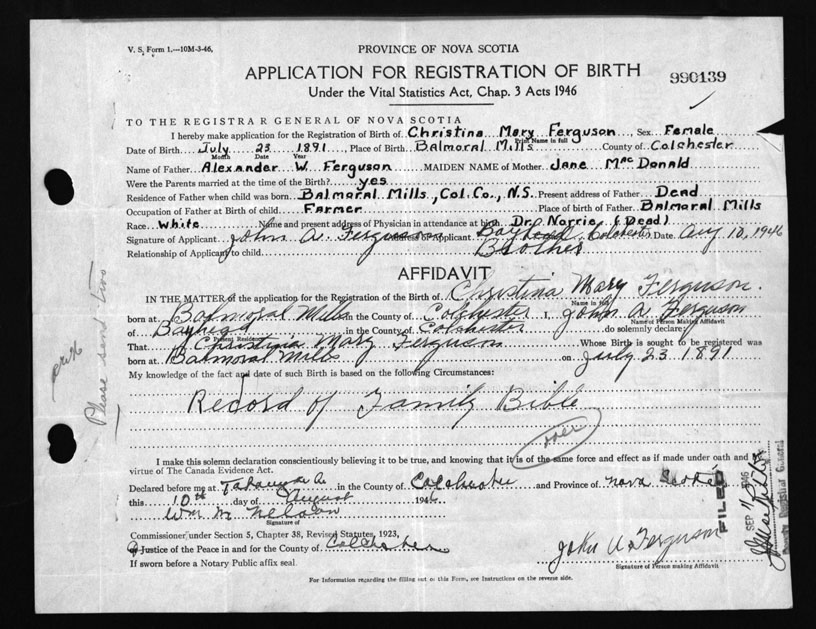 V. S. Form 1.—10M-3-46.
PROVINCE OF NOVA SCOTIA
APPLICATION FOR REGISTRATION OF BIRTH
990139
Under the Vital Statistics Act, Chap. 3 Acts 1946
TO THE REGISTRAR GENERAL OF NOVA SCOTIA
I hereby make application for the Registration of Birth of Christina Mary Ferguson, Sex Female
Print Name in full
Date of Birth July 23 1891, Place of Birth Balmoral Mills County of Colchester
Month Date Year
Name of Father Alexander W. Ferguson MAIDEN NAME of Mother Jane MacDonald
Were the Parents married at the time of the Birth? yes
Residence of Father when child was born Balmoral Mills, Col. Co., N.S. Present address of Father Dead
Occupation of Father at Birth of child Farmer Place of birth of Father Balmoral Mills
Race White Name and present address of Physician in attendance at birth Dr. Norrie (Dead)
Signature of Applicant John A. Ferguson Address of Applicant Bayhead, Colchester Date Aug 10, 1946
Relationship of Applicant to child Brother
AFFIDAVIT
IN THE MATTER of the application for the Registration of Birth of Christina Mary Ferguson.
Name in full
born at Balmoral Mills in the County of Colchester I, John A. Ferguson
Name of Person Making Affidavit
of Bayhead in the County of Colchester do solemnly declare:
Present Residence
That Christina Mary Ferguson Whose Birth is sought to be registered was
born at Balmoral Mills on July 23 1891
My knowledge of the fact and date of such Birth is based on the following Circumstances:
Record of Family Bible
over
I make this solemn declaration conscientiously believing it to be true, and knowing that it is of the same force and effect as if made under oath and by
virtue of The Canada Evidence Act.
Declared before me at in the County of Colchester and Province of Nova Scotia
this 10th day of August 1946
Wm M Nelson
Signature of
Commissioner under Section 5, Chapter 38, Revised Statutes, 1923,
Justice of the Peace in and for the County of Colchester
If sworn before a Notary Public affix seal.
John A Ferguson
Signature of Person making Affidavit
For Information regarding the filling out of this Form, see Instructions on the reverse side.
Please send two
FILED
SEP 1946